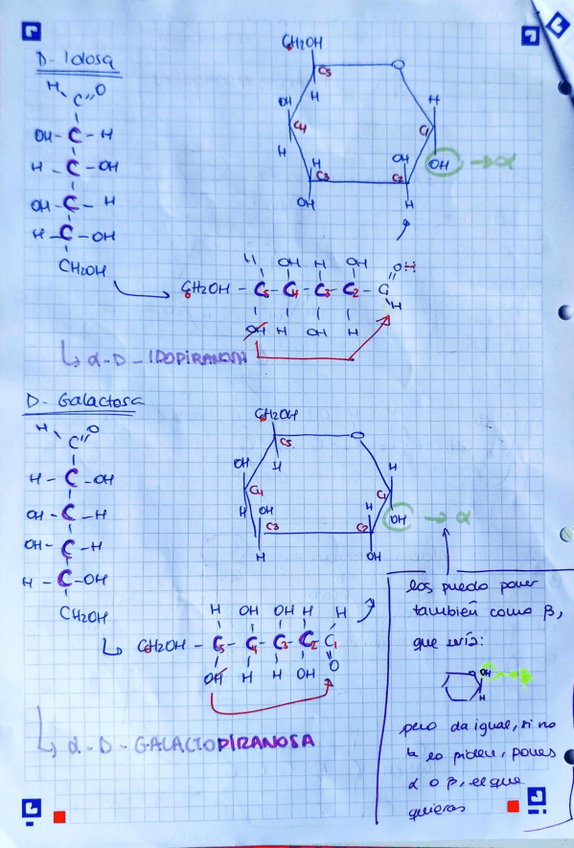 D- Idosa
H C O
OH - C - H
H - C - OH
OH - C - H
H - C - OH
CH2OH
CH2OH
C5 O
OH H H
C4 C1
H H OH OH → α
C3 C2
OH H
H OH H OH OH
CH2OH - C5 - C4 - C3 - C2 - C1
OH H OH H H
↳ α-D-IDOPIRANOSA
D- Galactosa
H C O
H - C - OH
OH - C - H
OH - C - H
H - C - OH
CH2OH
CH2OH
C5 O
OH H H
C4 C1
H OH H OH → α
C3 C2
H OH
H OH OH H H
↳ CH2OH - C5 - C4 - C3 - C2 - C1
OH H H OH O
↳ α-D-GALACTOPIRANOSA
los puedo poner
también como β,
que sería:
OH
H
pero da igual, si no
te lo piden, pones
α o β, el que
quieras